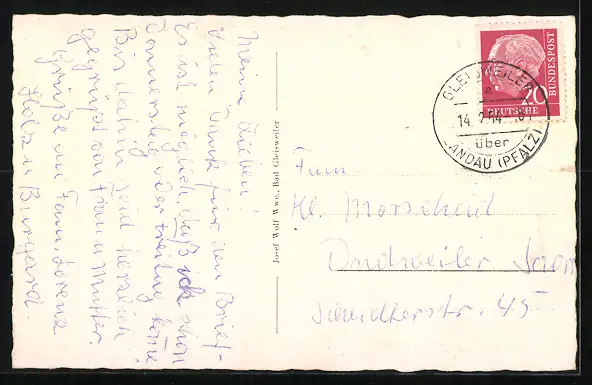 Meine Lieben!
Vielen Dank für den Brief-
Es ist möglich, daß ich schon
Donnerstag oder Freitag komme
Bis dahin seid herzlich
gegrüßt von Frau u Mutter.
Grüße an Fam. Lorenz
u Burgard.
Josef Wolf Wwe., Bad Gleisweiler
DEUTSCHE
BUNDESPOST
20
GLEISWEILER
a
14 2
über
LANDAU (PFALZ)
Fam.
Kl. Morscheid
Dudweiler Saar
45